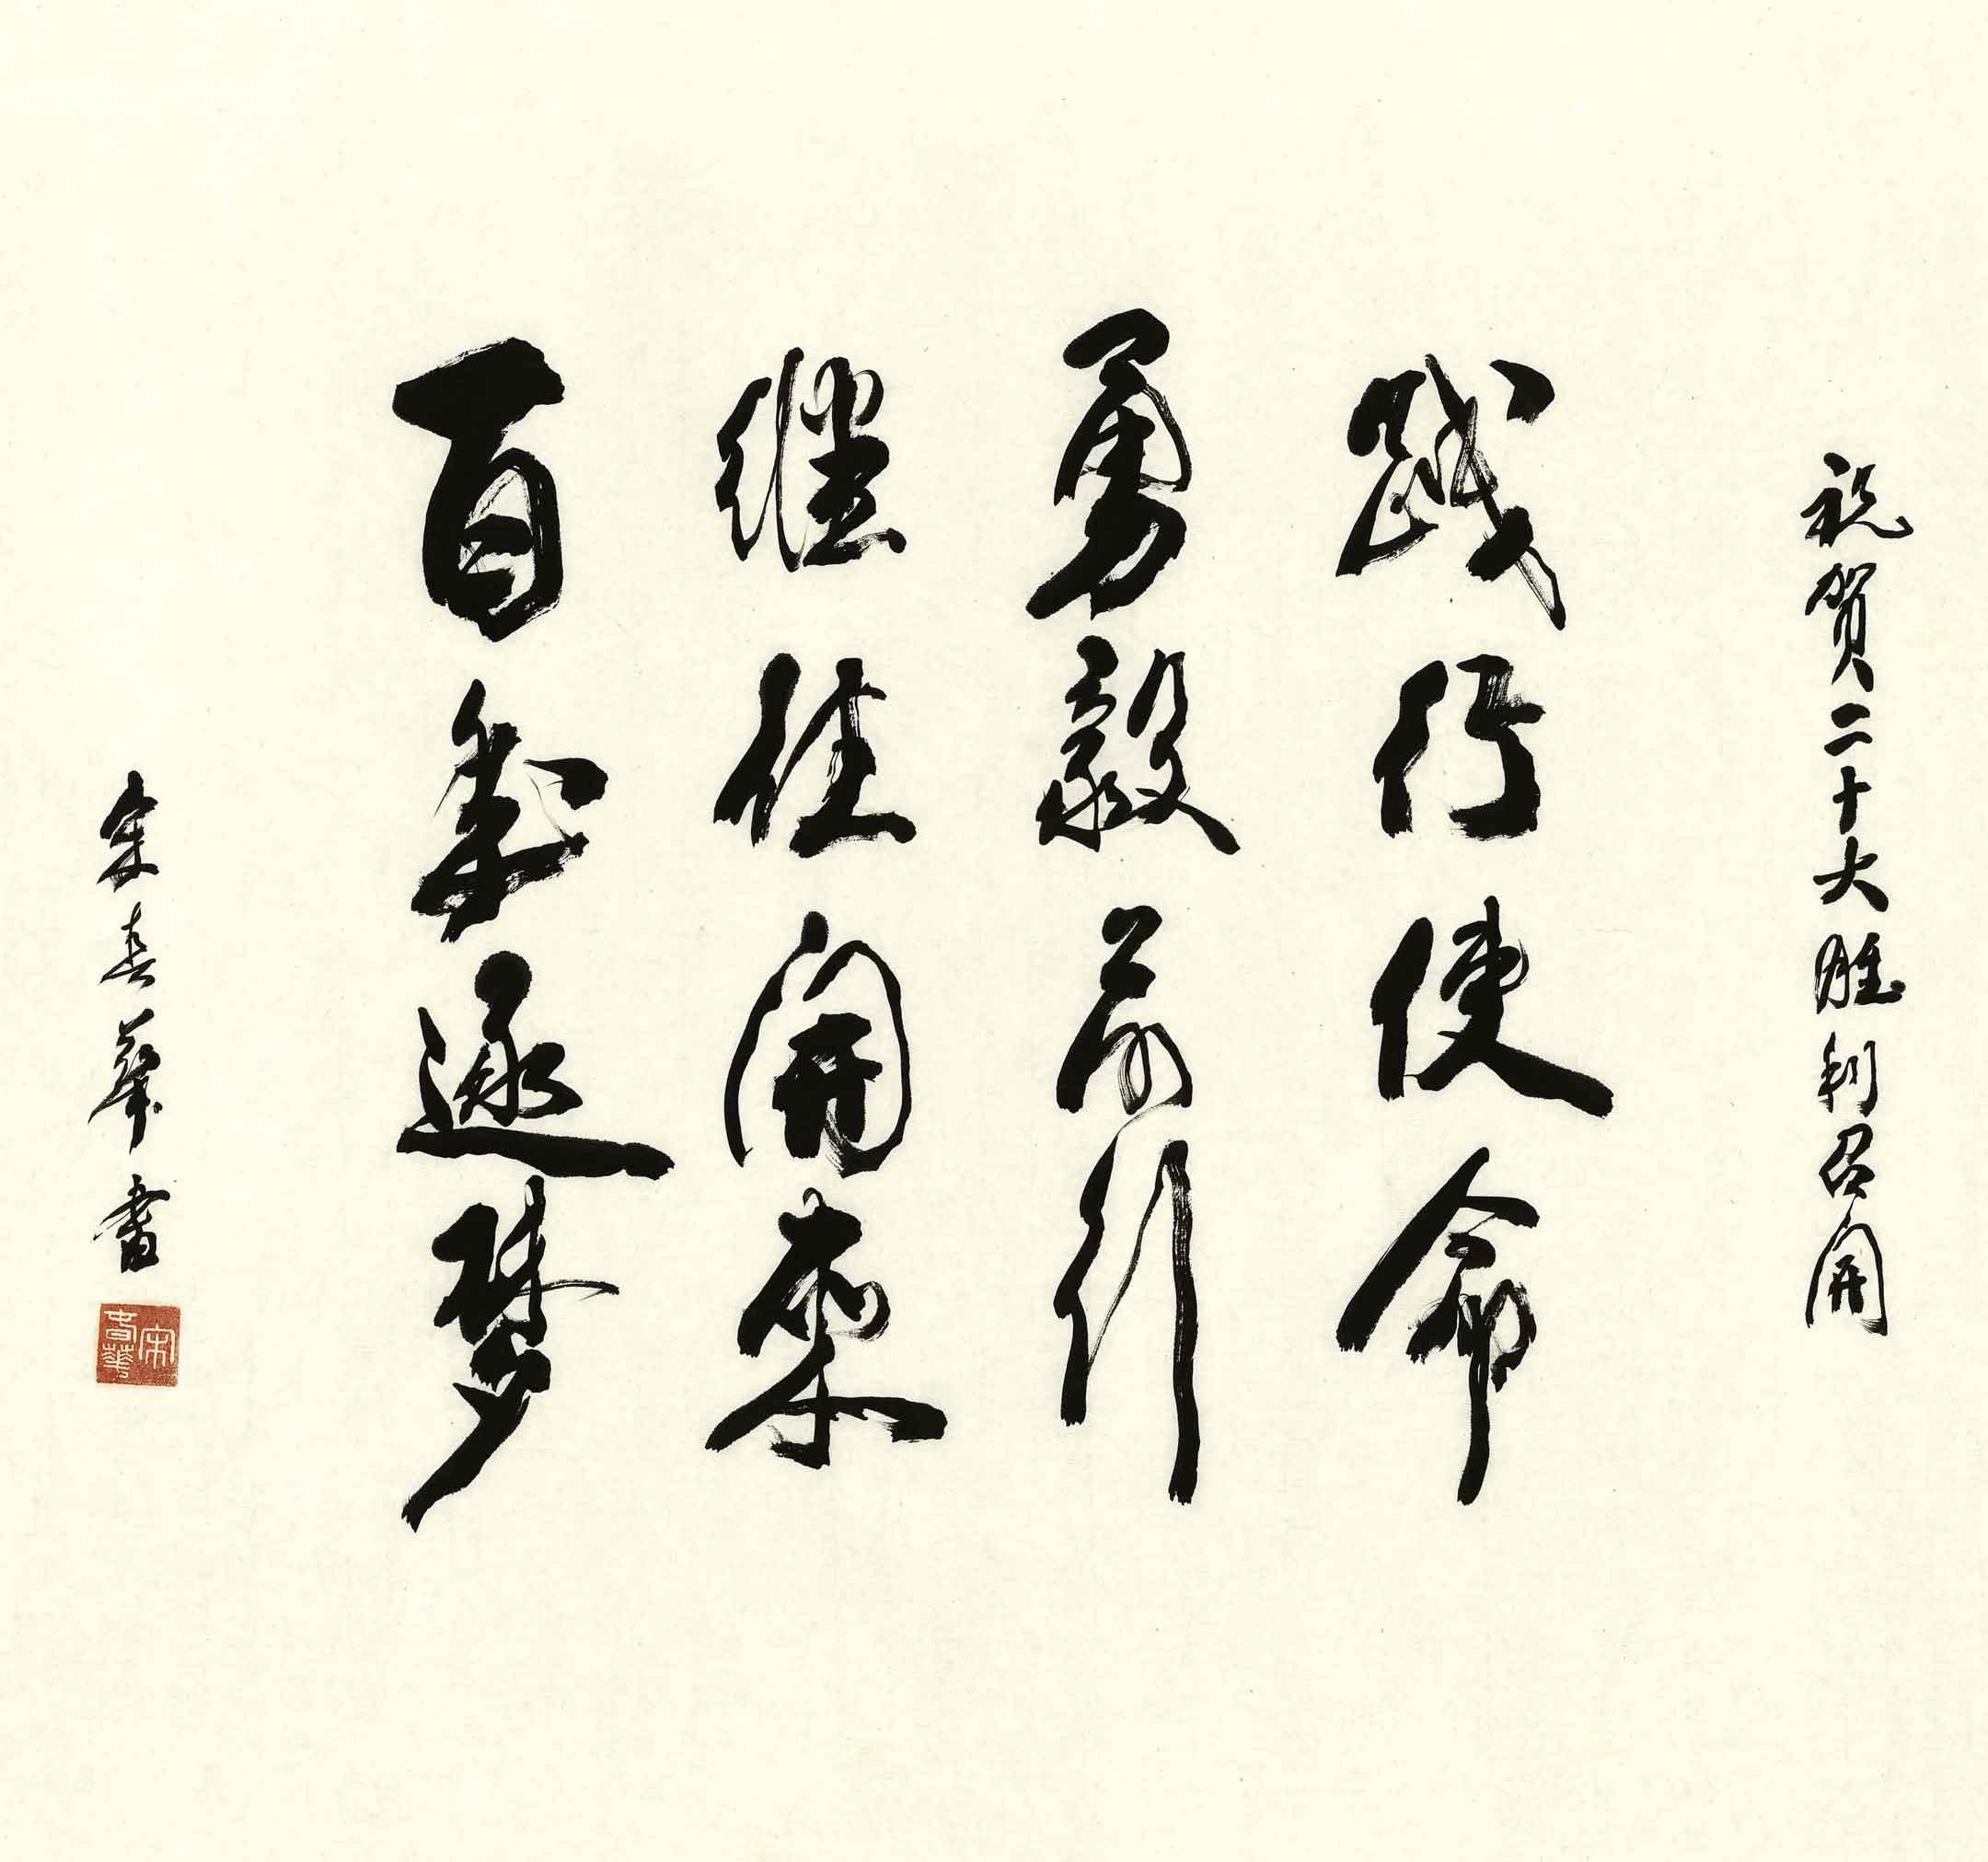 祝贺二十大胜利召開
践行使命
勇毅前行
继往開來
百年逐梦
宋春華書
宋春華